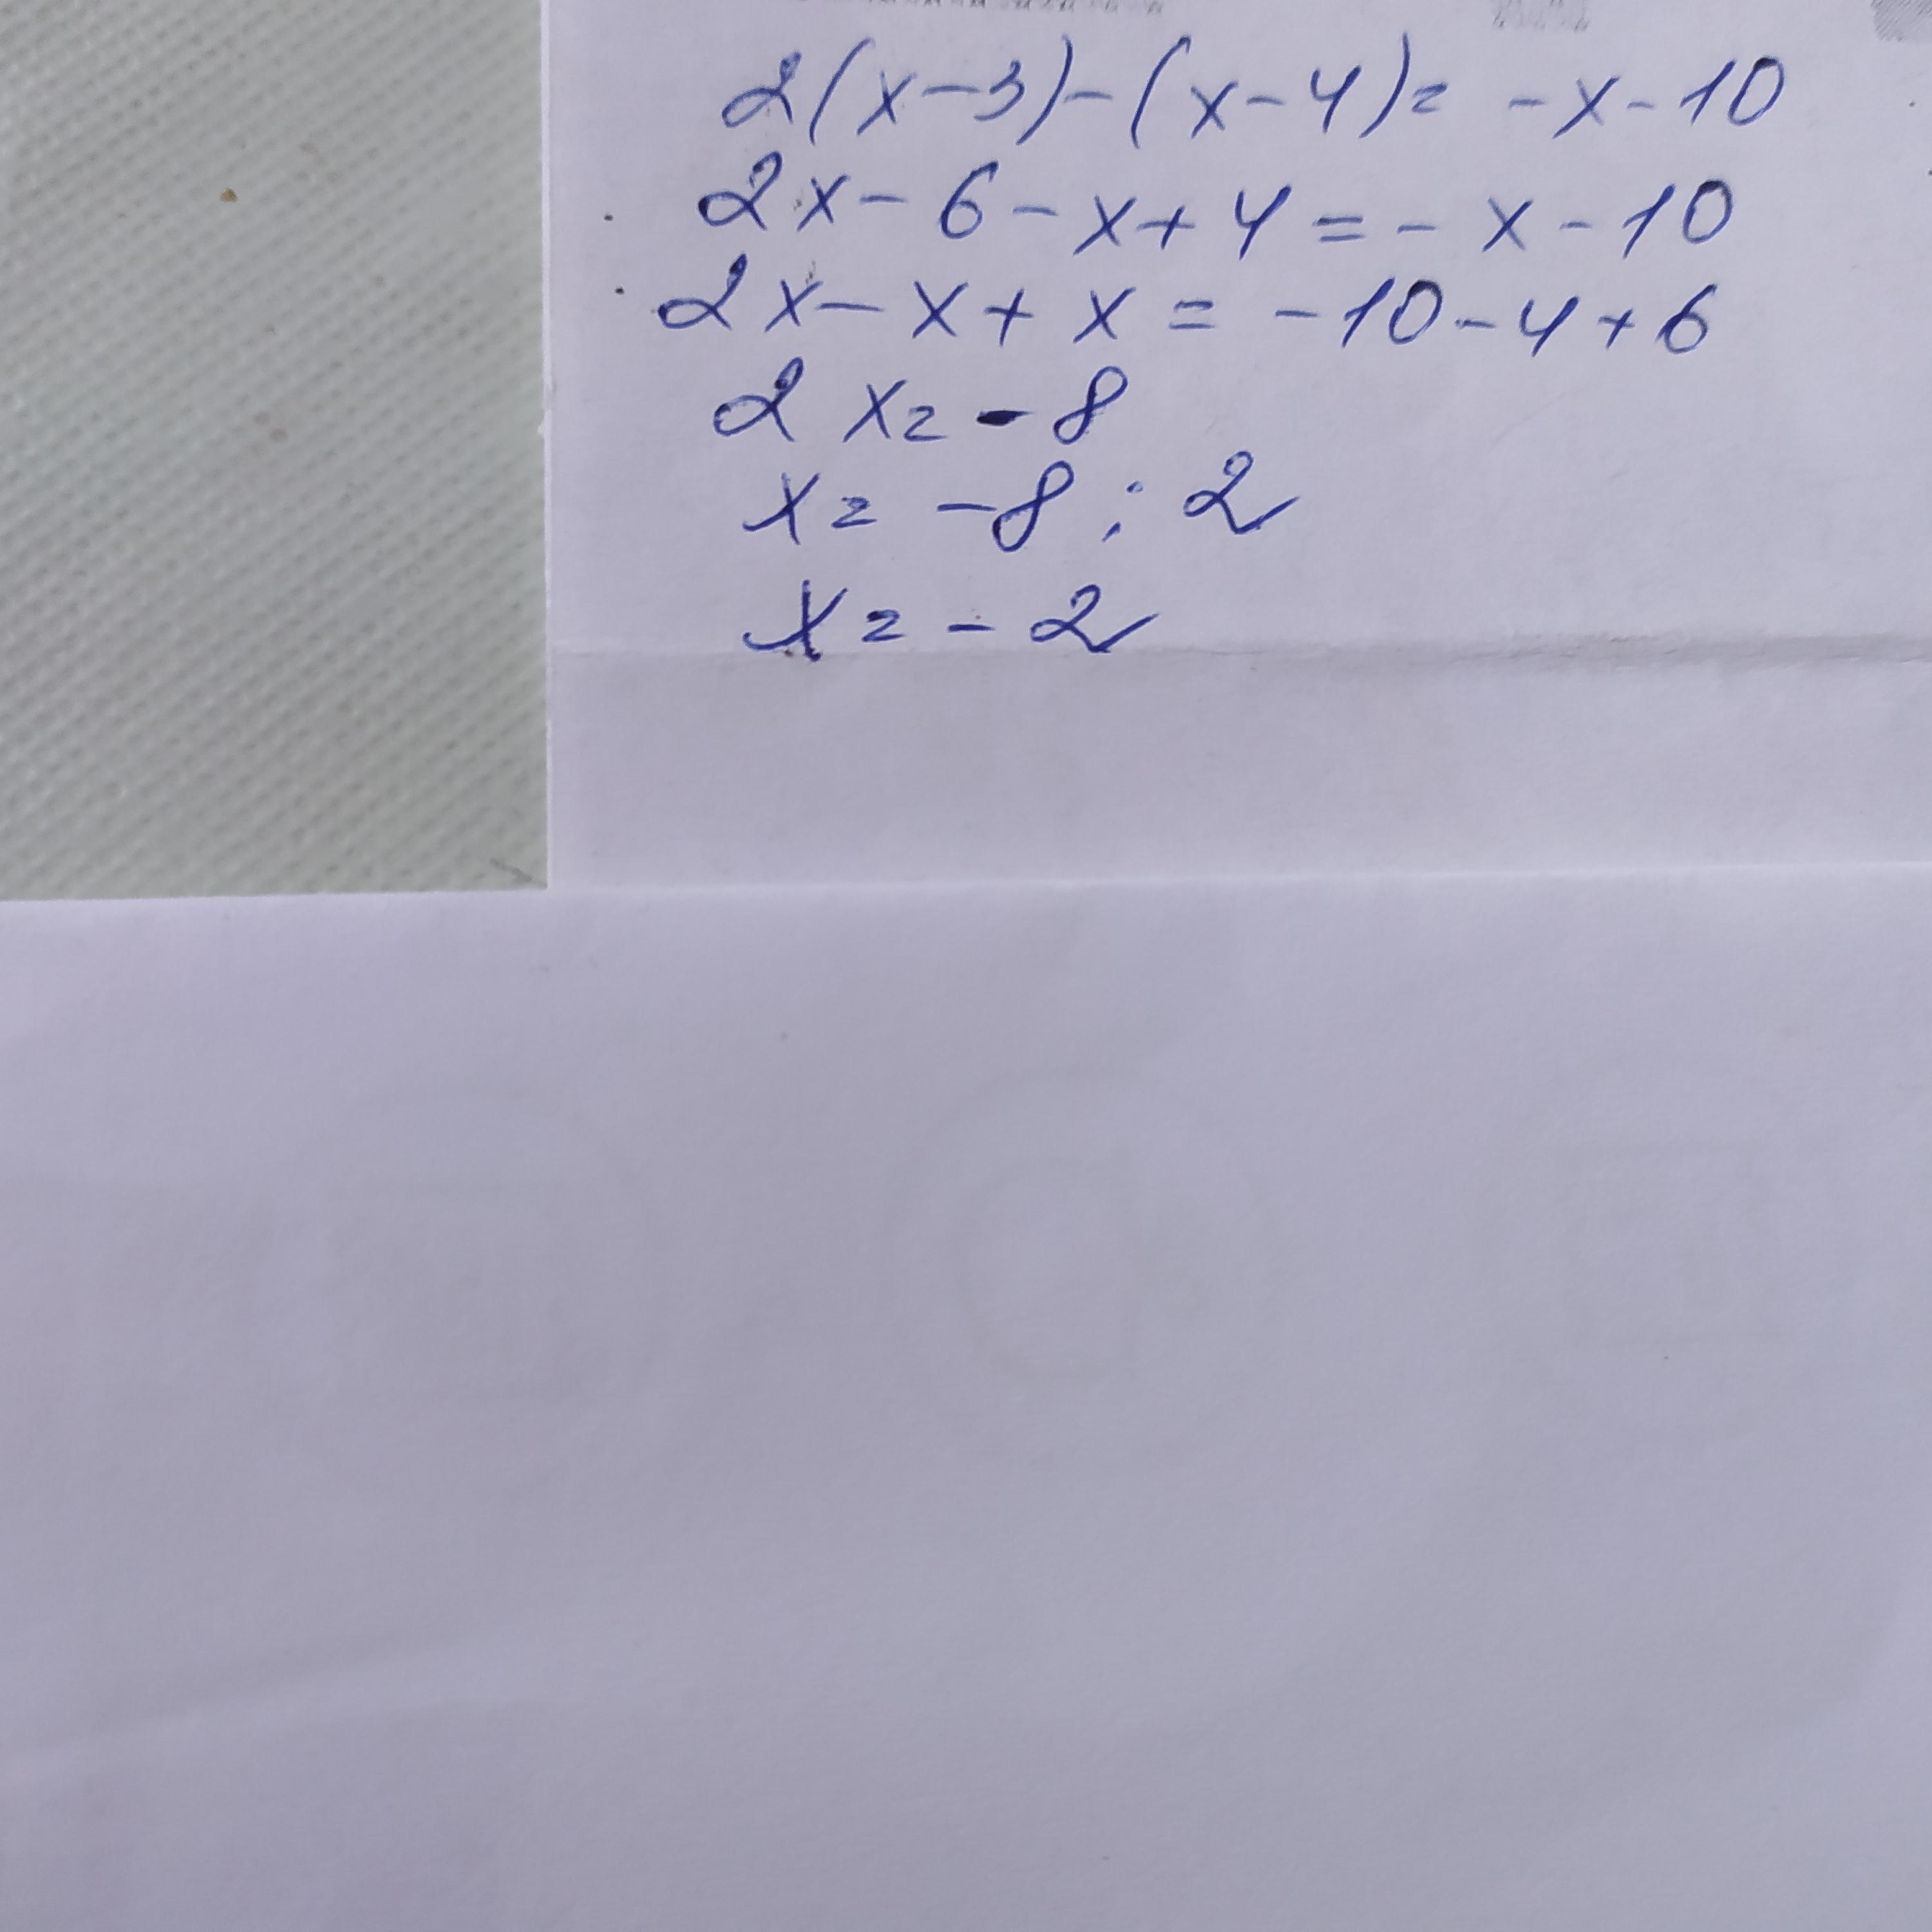 2(x-3)-(x-4)= -x-10
2x-6-x+4=-x-10
2x-x+x=-10-4+6
2x=-8
x=-8:2
x=-2